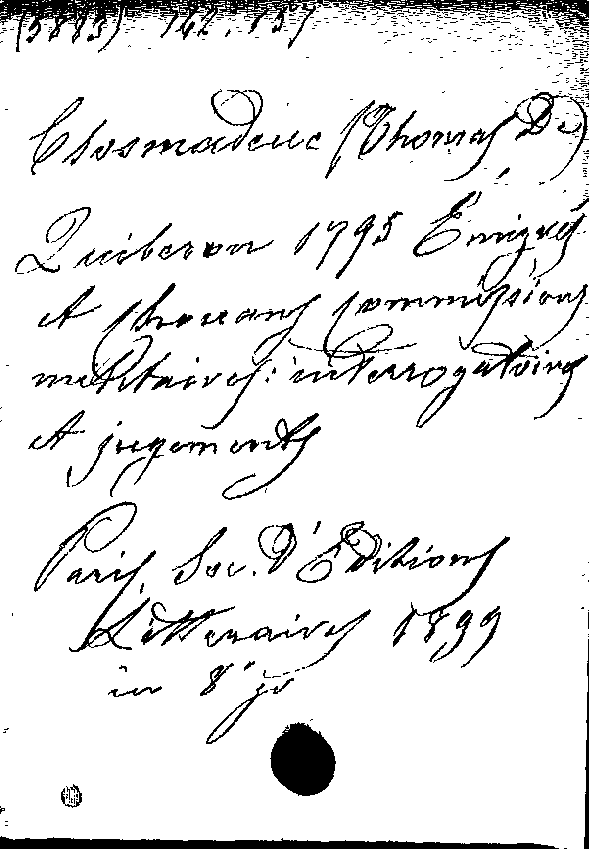 (5883) 162.157
Closmadeuc (Thomas De)
Quiberon 1795 Émigrés
et chouans commissions
militaires: interrogatoires
et jugements
Paris, Soc. d'Éditions
Littéraires 1899
in 8°